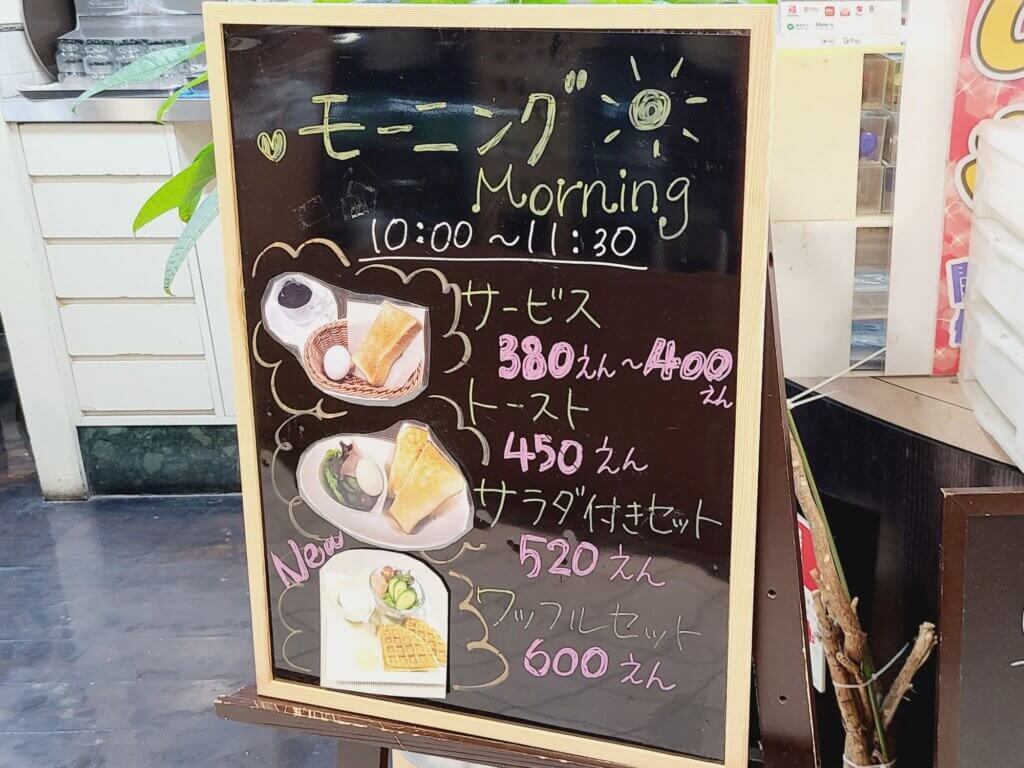 モーニング
Morning
10:00 ~11:30
サービス
380えん~400えん
トースト
450えん
サラダ付きセット
520えん
New
ワッフルセット
600えん